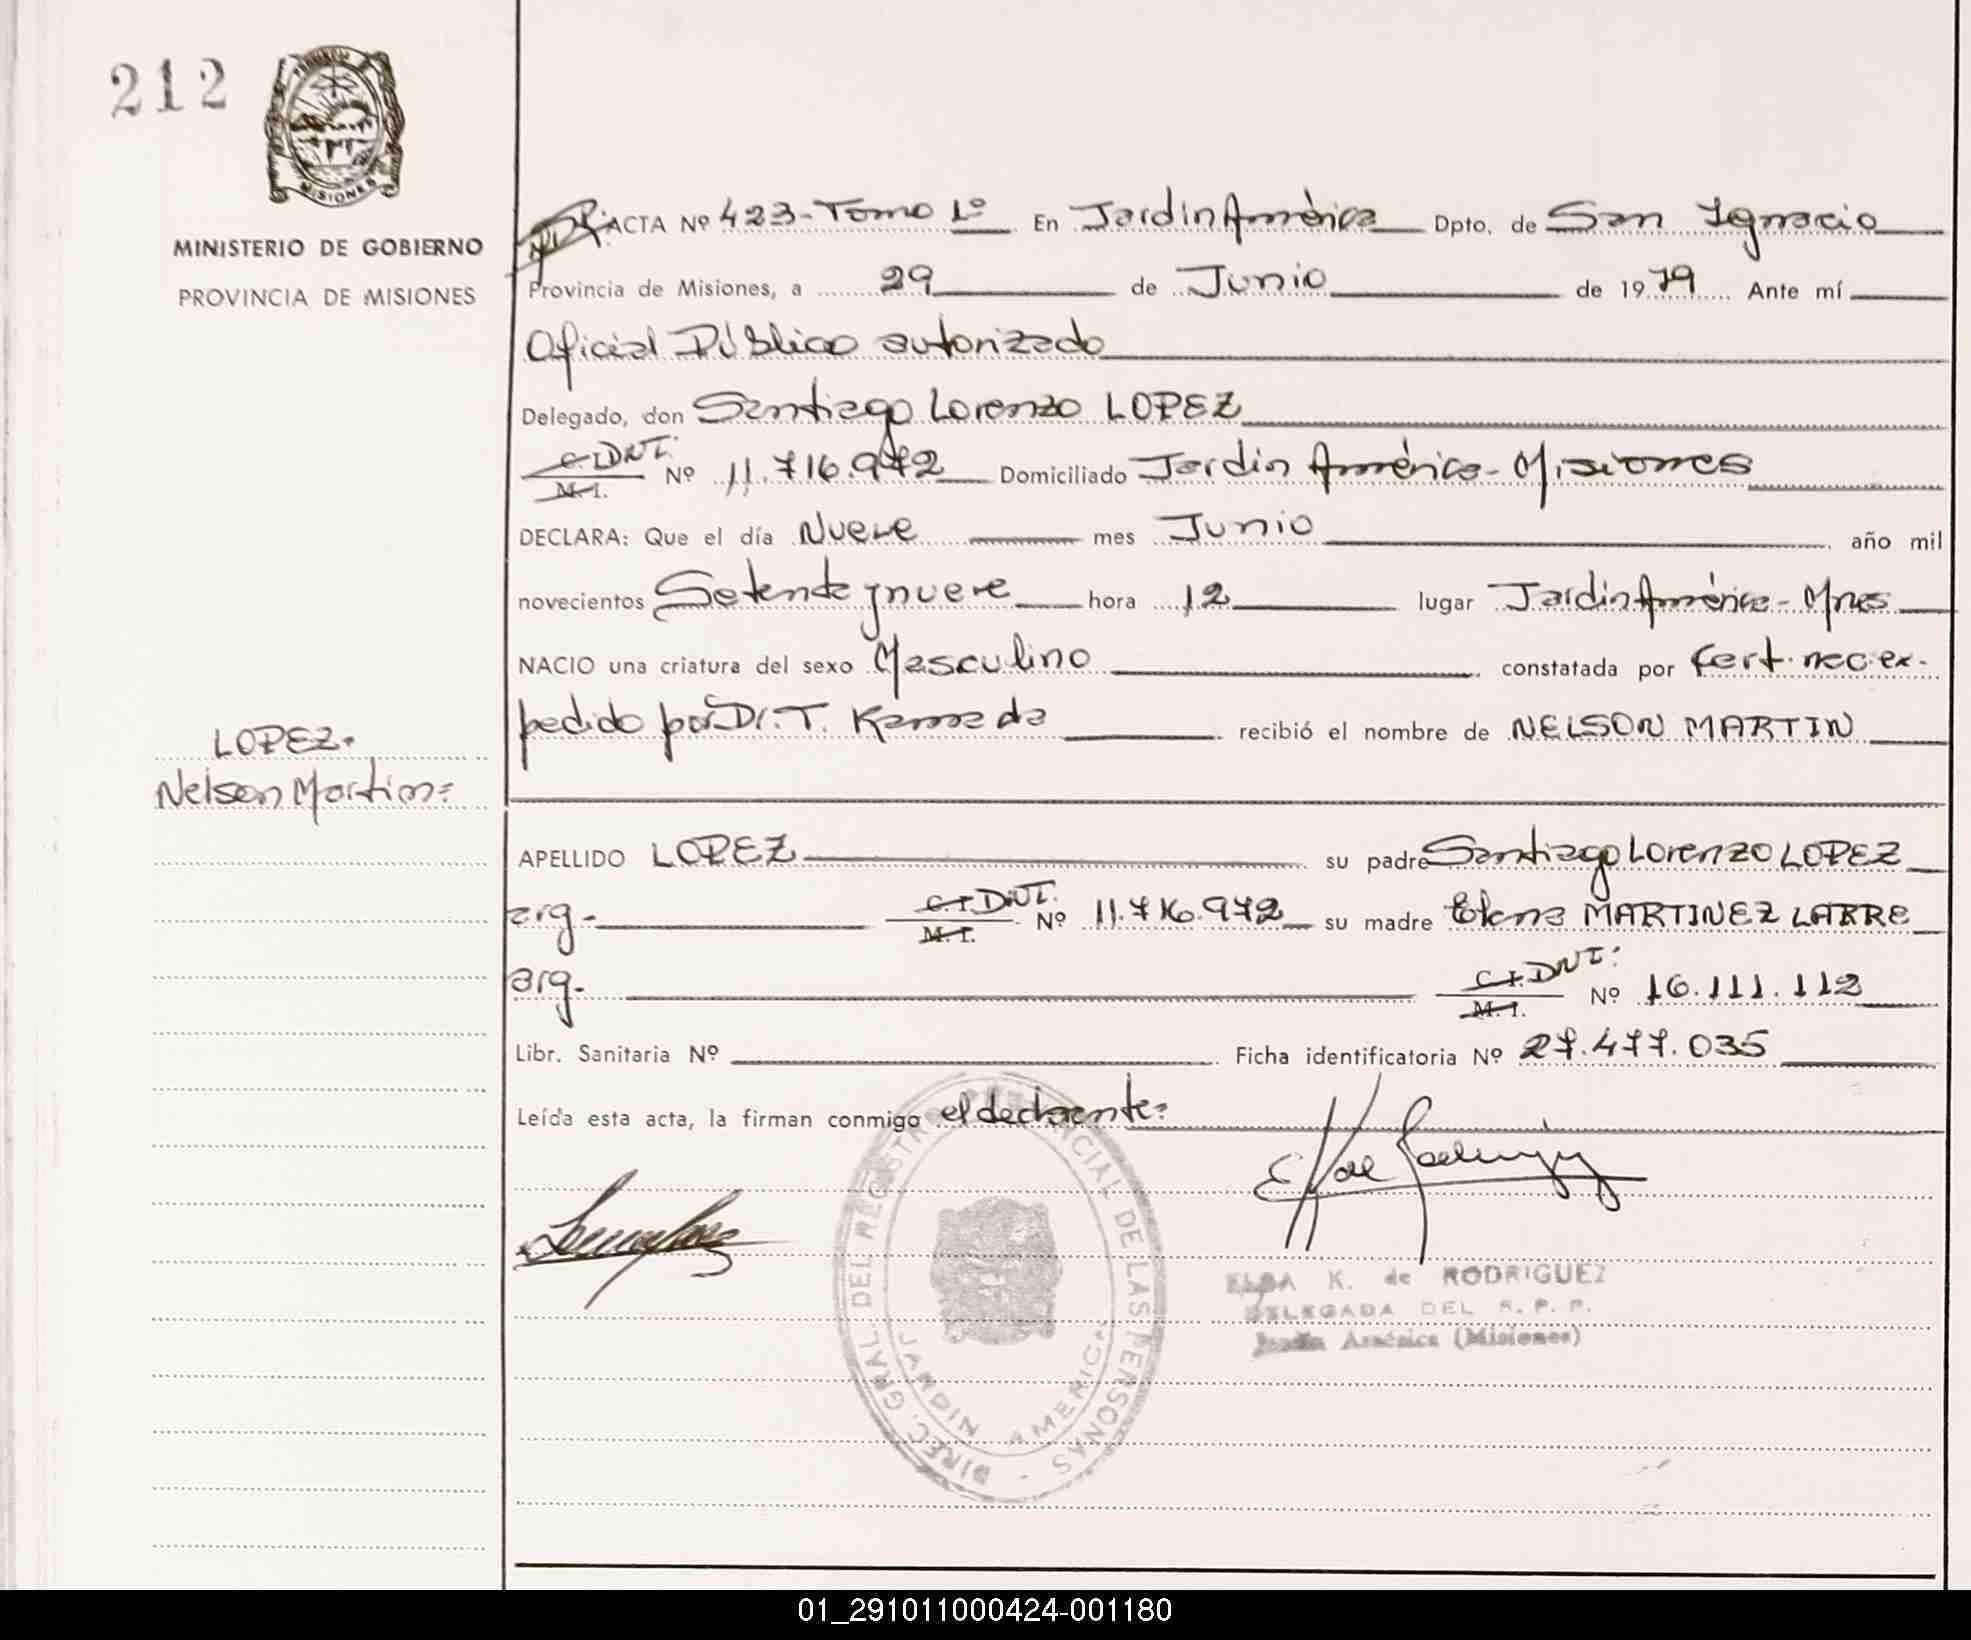 212
MISIONES
MINISTERIO DE GOBIERNO
PROVINCIA DE MISIONES
ACTA Nº 423-Tomo 1º En Jardin América Dpto. de San Ignacio
Provincia de Misiones, a 29 de Junio de 1979 Ante mí
Oficial Público autorizado
Delegado, don Santiago Lorenzo LOPEZ
C.I. DNI. M.I. Nº 11.716.972 Domiciliado Jardin América - Misiones
DECLARA: Que el día Nueve mes Junio año mil
novecientos Setenta y nueve hora 12 lugar Jardin América - Mnes
NACIO una criatura del sexo Masculino constatada por Cert. nac. ex-
pedido por Dr. T. Kameda recibió el nombre de NELSON MARTIN
LOPEZ.
Nelson Martin=
APELLIDO LOPEZ su padre Santiago Lorenzo LOPEZ
arg- C.I. DNI. M.I. Nº 11.716.972 su madre Elena MARTINEZ LABRE
arg- C.I. DNI: M.I. Nº 16.111.112
Libr. Sanitaria Nº Ficha identificatoria Nº 27.477.035
Leída esta acta, la firman conmigo el declarente=
DIREC. GRAL. DEL REGISTRO PROVINCIAL DE LAS PERSONAS -
JARDIN AMERICA
E K de Rodriguez
ELBA K. de RODRIGUEZ
DELEGADA DEL R. P. P.
Jardín América (Misiones)
01_291011000424-001180